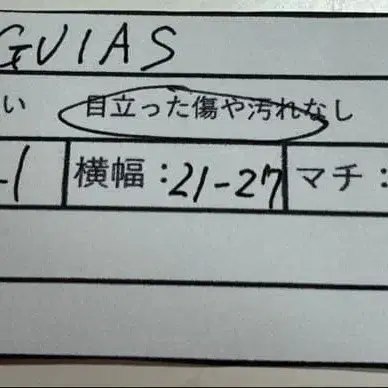 GUIAS
い 目立った傷や汚れなし
-1 横幅：21-27 マチ：